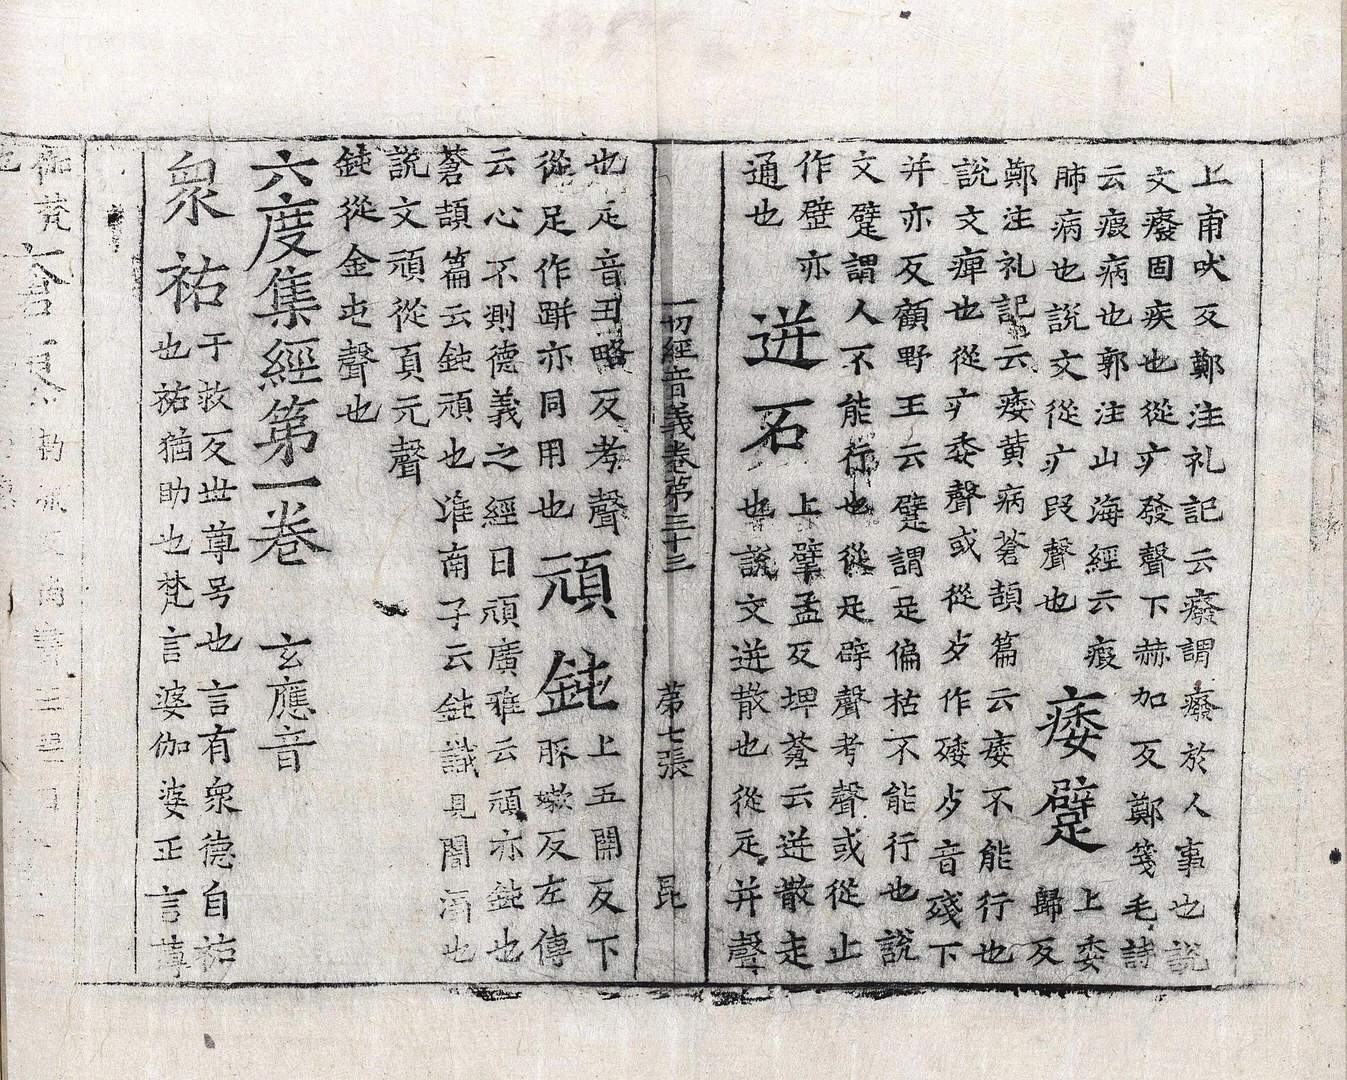 上甫吠反鄭注礼記云癈謂癈於人事也說
文癈固疾也從疒發聲下赫加反鄭箋毛詩
云瘕病也郭注山海經云瘕
肺病也說文從疒叚聲也
痿躄
上委
歸反
鄭注礼記云痿黃病蒼頡篇云痿不能行也
說文痺也從疒委聲或從歹作䅗歹音殘下
并亦反顧野王云躄謂足偏枯不能行也說
文躄謂人不能行也從足辟聲考聲或從止
作壁亦
通也
迸石
上擘孟反埤蒼云迸散走
也說文迸散也從辵并聲
一切經音義卷第三十三　第七張　昆
也辵音丑略反考聲
從足作跰亦同用也
頑鈍
上五開反下
豚嫩反左傳
云心不測德義之經曰頑廣雅云頑亦鈍也
蒼頡篇云鈍頑也淮南子云鈍識見闇濁也
說文頑從頁元聲
鈍從金屯聲也
六度集經第一卷　玄應音
衆祐
于救反世尊号也言有衆德自祐
也祐猶助也梵言婆伽婆正言薄
伽梵